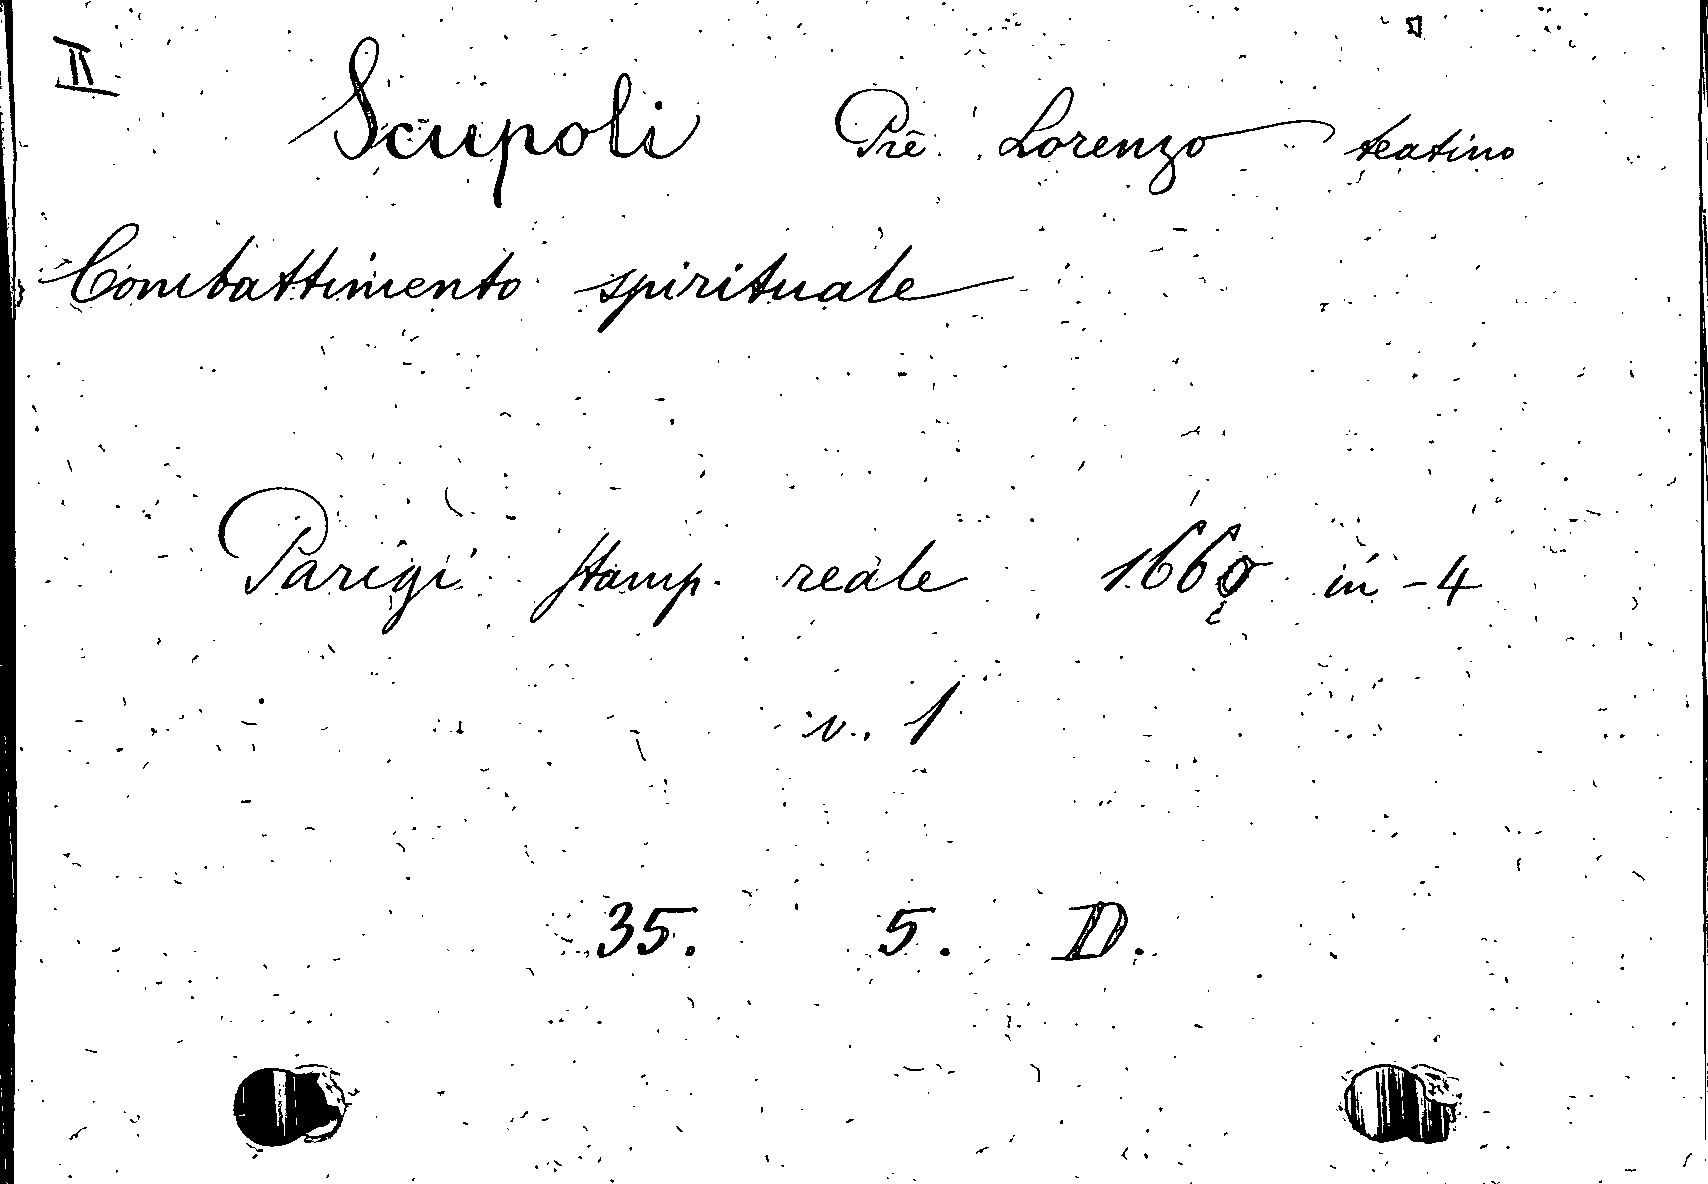 II
Scupoli Prē Lorenzo teatino
Combattimento spirituale
Parigi stamp. reale 1660 in-4
v. 1
35. 5. D.